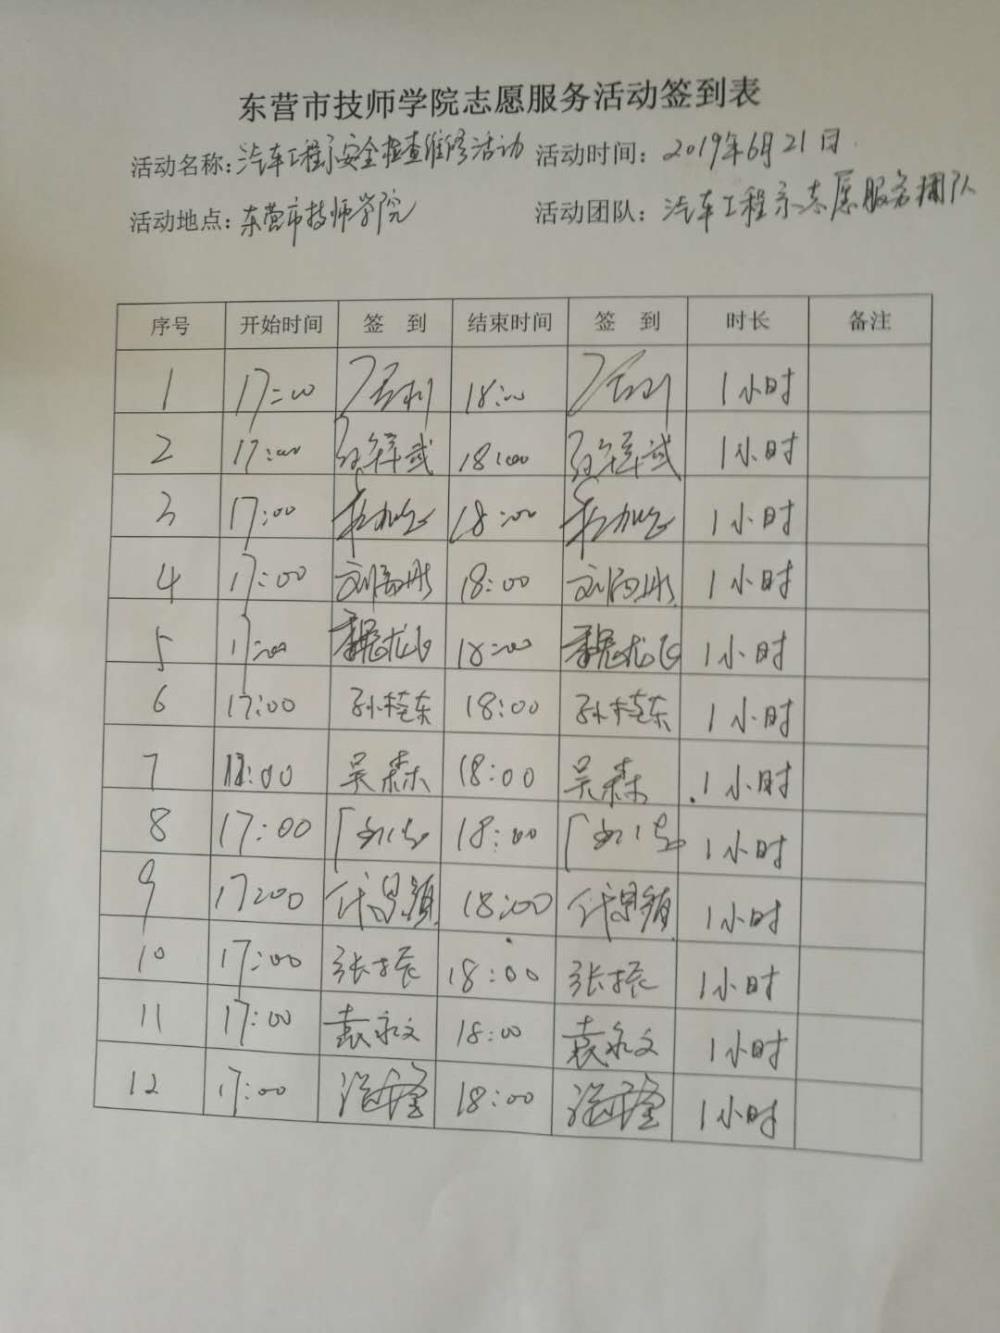 东营市技师学院志愿服务活动签到表
活动名称:汽车工程系安全检查维修活动 活动时间: 2019年6月21日.
活动地点:东营市技师学院 活动团队: 汽车工程系志愿服务团队
序号 开始时间 签 到 结束时间 签 到 时长 备注
1 17:00 18:00 1小时
2 17:00 18:00 1小时
3 17:00 18:00 1小时
4 17:00 18:00 1小时
5 17:00 魏龙飞 18:00 魏龙飞 1小时
6 17:00 18:00 1小时
7 18:00 吴森 18:00 吴森 1小时
8 17:00 18:00 1小时
9 17:00 18:00 1小时
10 17:00 张振 18:00 张振 1小时
11 17:00 袁永文 18:00 袁永文 1小时
12 17:00 18:00 1小时